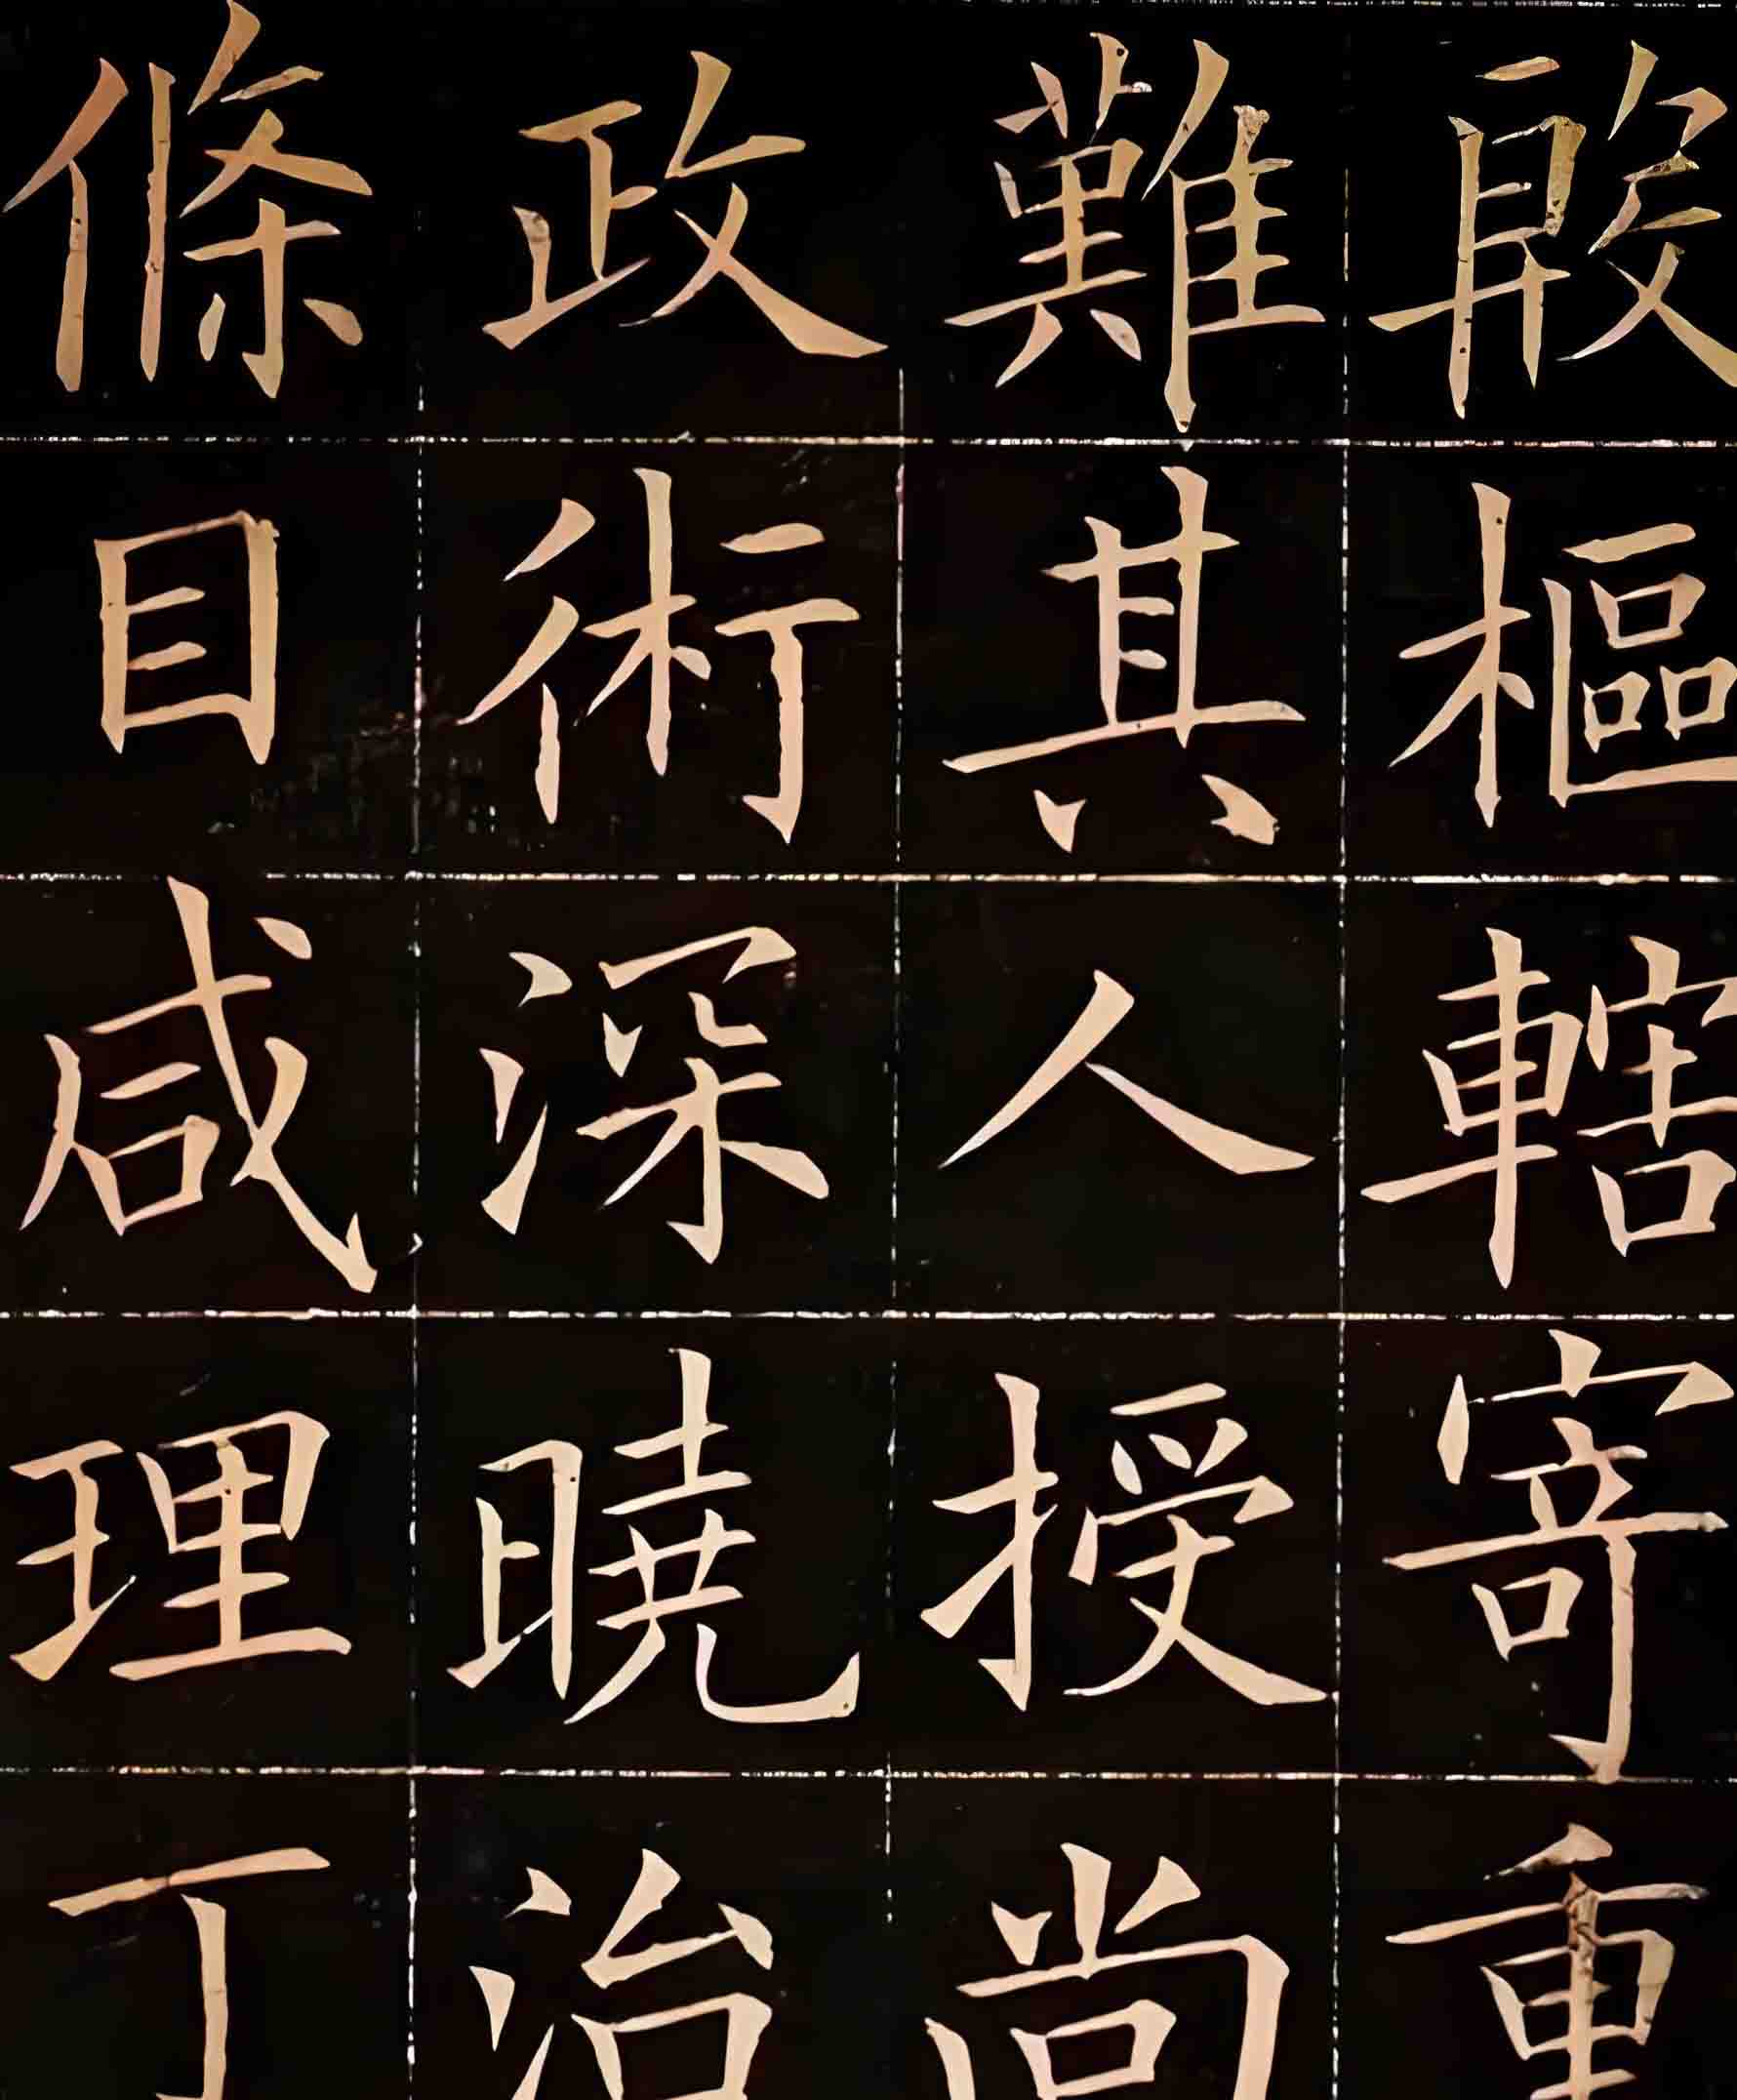 殷樞轄寄重
難其人授尚
政術深曉治
條目咸理丁